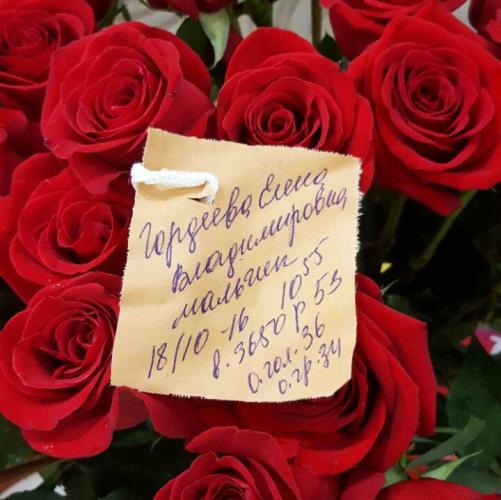 Гордеева Елена
Владимировна
мальчик
18/10-16 10 55
в. 3650 р. 53
о. гол. 36
о. гр. 34